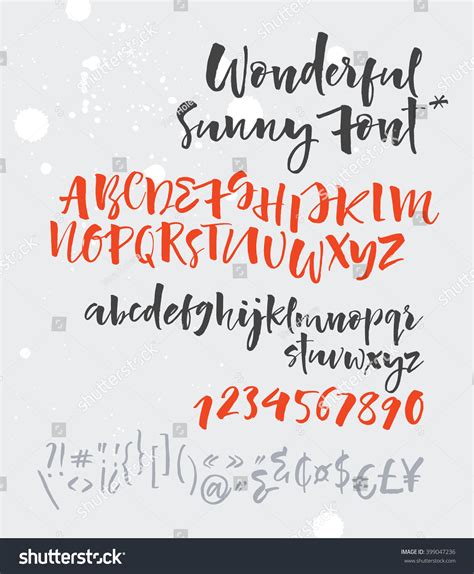 Wonderful
Sunny Font*
ABCDEFGHIJKLM
NOPQRSTUVWXYZ
abcdefghijklmnopqr
stuvwxyz
1234567890
shutterstock
IMAGE ID: 399047236
www.shutterstock.com